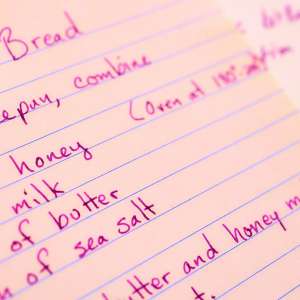 Bread
epan, combine
(Oven at 180°
honey
milk
of butter
of sea salt
butter and honey m